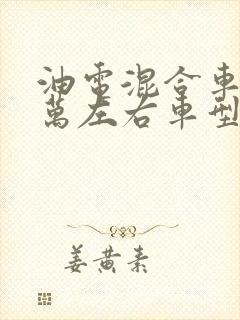 油電混合車
萬左右車型
姜黃素